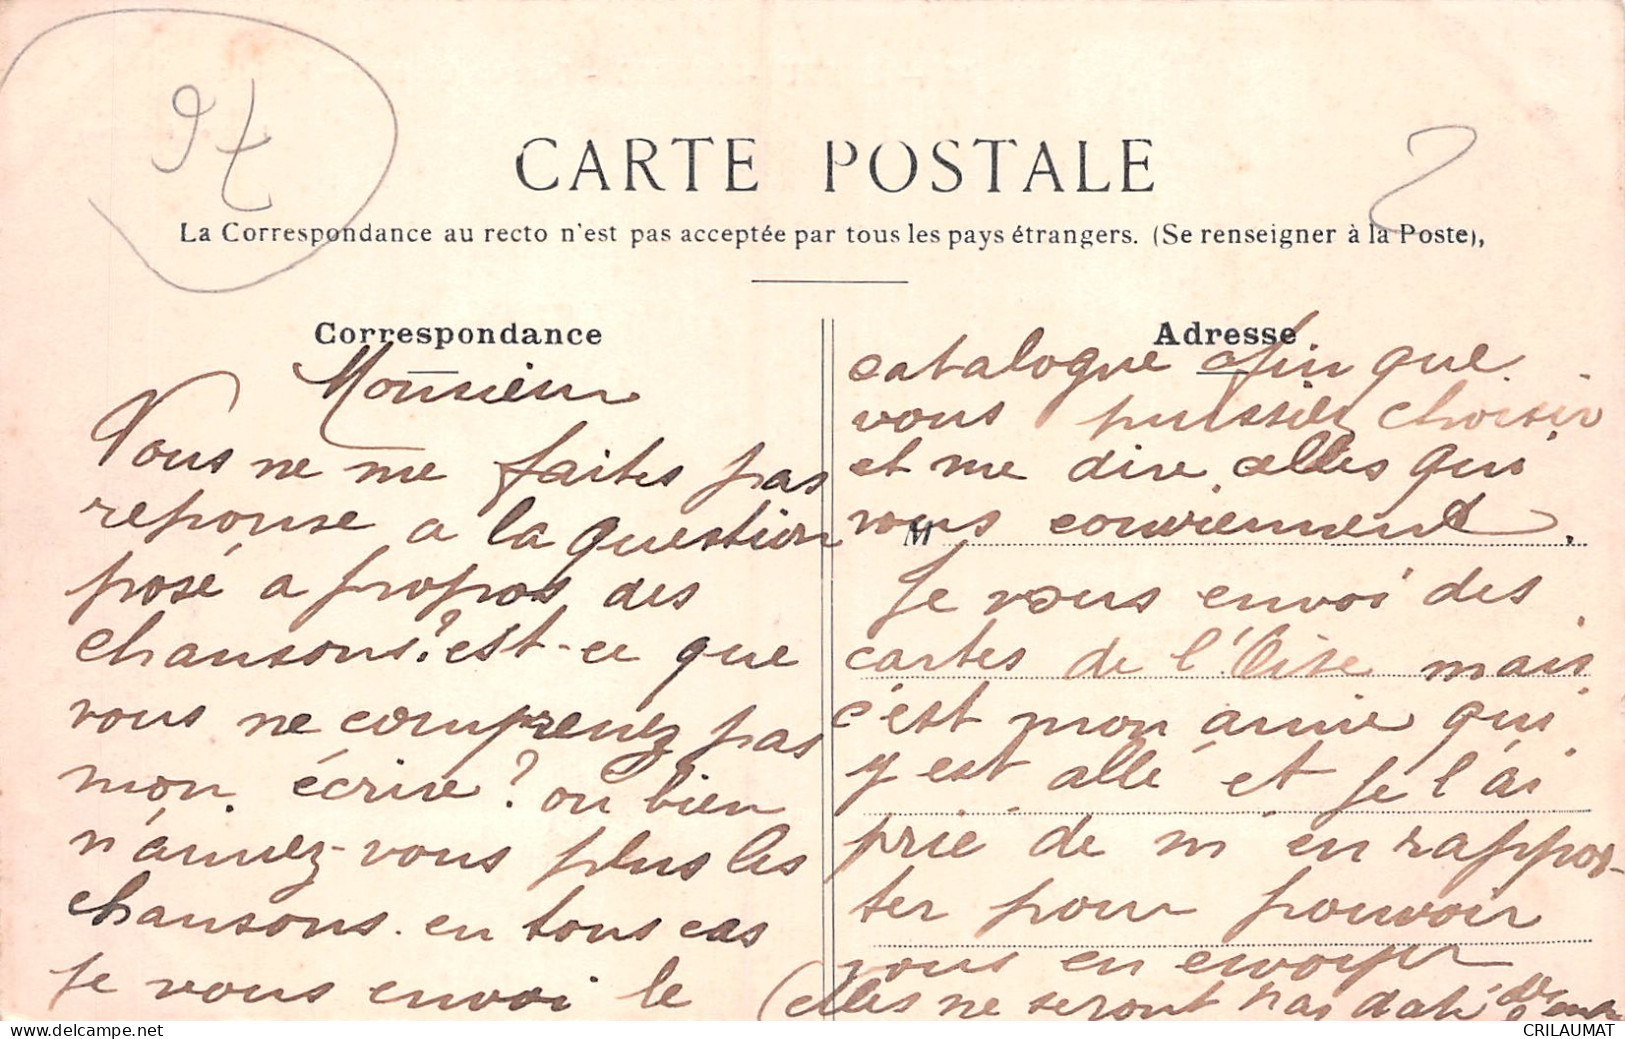 97
2
CARTE POSTALE
La Correspondance au recto n'est pas acceptée par tous les pays étrangers. (Se renseigner à la Poste),
Correspondance
Monsieur
Vous ne me faites pas
reponse a la question
posé a propos des
chansons? est-ce que
vous ne comprenez pas
mon écrire? ou bien
n'aimez-vous plus les
chansons. en tous cas
Je vous envoi le
Adresse
catalogue afin que
vous puissiez choisir
et me dire celles qui
vous conviennent.
M
Je vous envoi des
cartes de l'Oise mais
c'est mon amie qui
y est allé et je l'ai
prié de m'en rappor-
ter pour pouvoir
vous en envoyer
(elles ne seront pas daté
CRILAUMAT